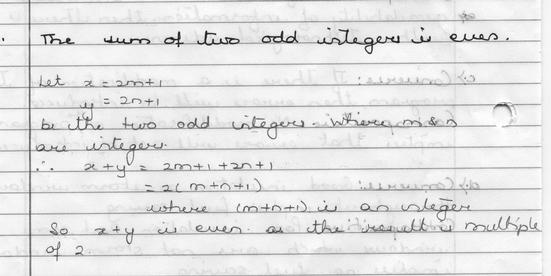 The sum of two odd integers is even.
Let x = 2m+1
y = 2n+1
be the two odd integers. Where m & n
are integers.
∴ x+y = 2m+1+2n+1
= 2(m+n+1)
where (m+n+1) is an integer
So x+y is even as the result is multiple
of 2.